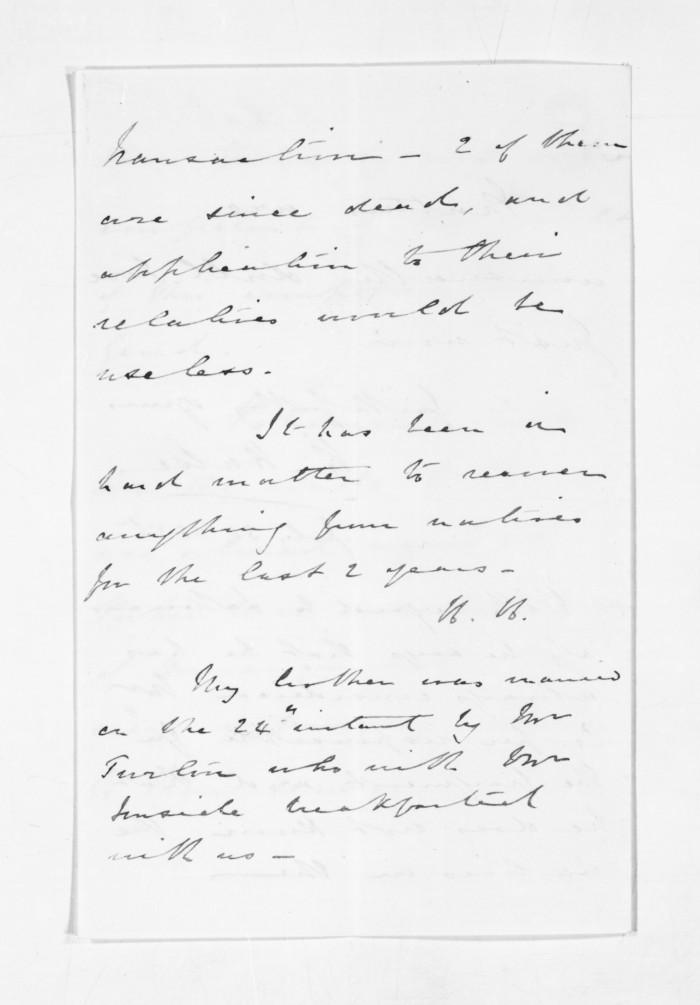 transaction – 2 of them
are since dead, and
application to their
relatives would be
useless.
It has been a
hard matter to recover
anything from natives
for the last 2 years –
H. H.
My brother was married
on the 24th instant by Mr
who with Mr
breakfasted
with us –